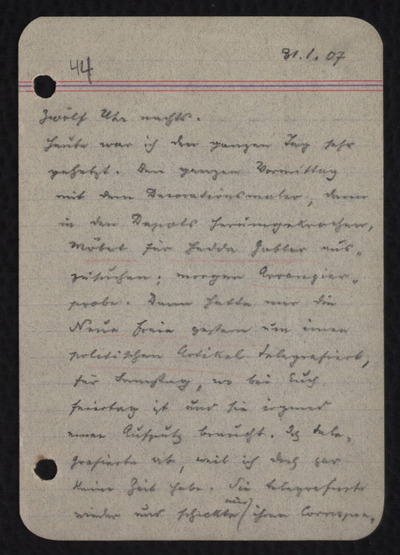 44
31.1.07
Zwölf Uhr nachts.
Heute war ich den ganzen Tag sehr
gehetzt. Den ganzen Vormittag
mit dem Decorationsmaler, dann
in den Depots herumgekrochen,
Möbel für Hedda Gabler aus-
zusuchen; morgen Arrangier-
probe. Dann hatte mir die
Neue Freie gestern um einen
politischen Artikel telegrafiert,
für Samstag, wo bei Euch
Feiertag ist und sie irgend
einen Aufputz braucht. Ich tele-
grafierte ab, weil ich doch gar
keine Zeit habe. Sie telegrafierte
wieder und schickte mir ihren Correspon-